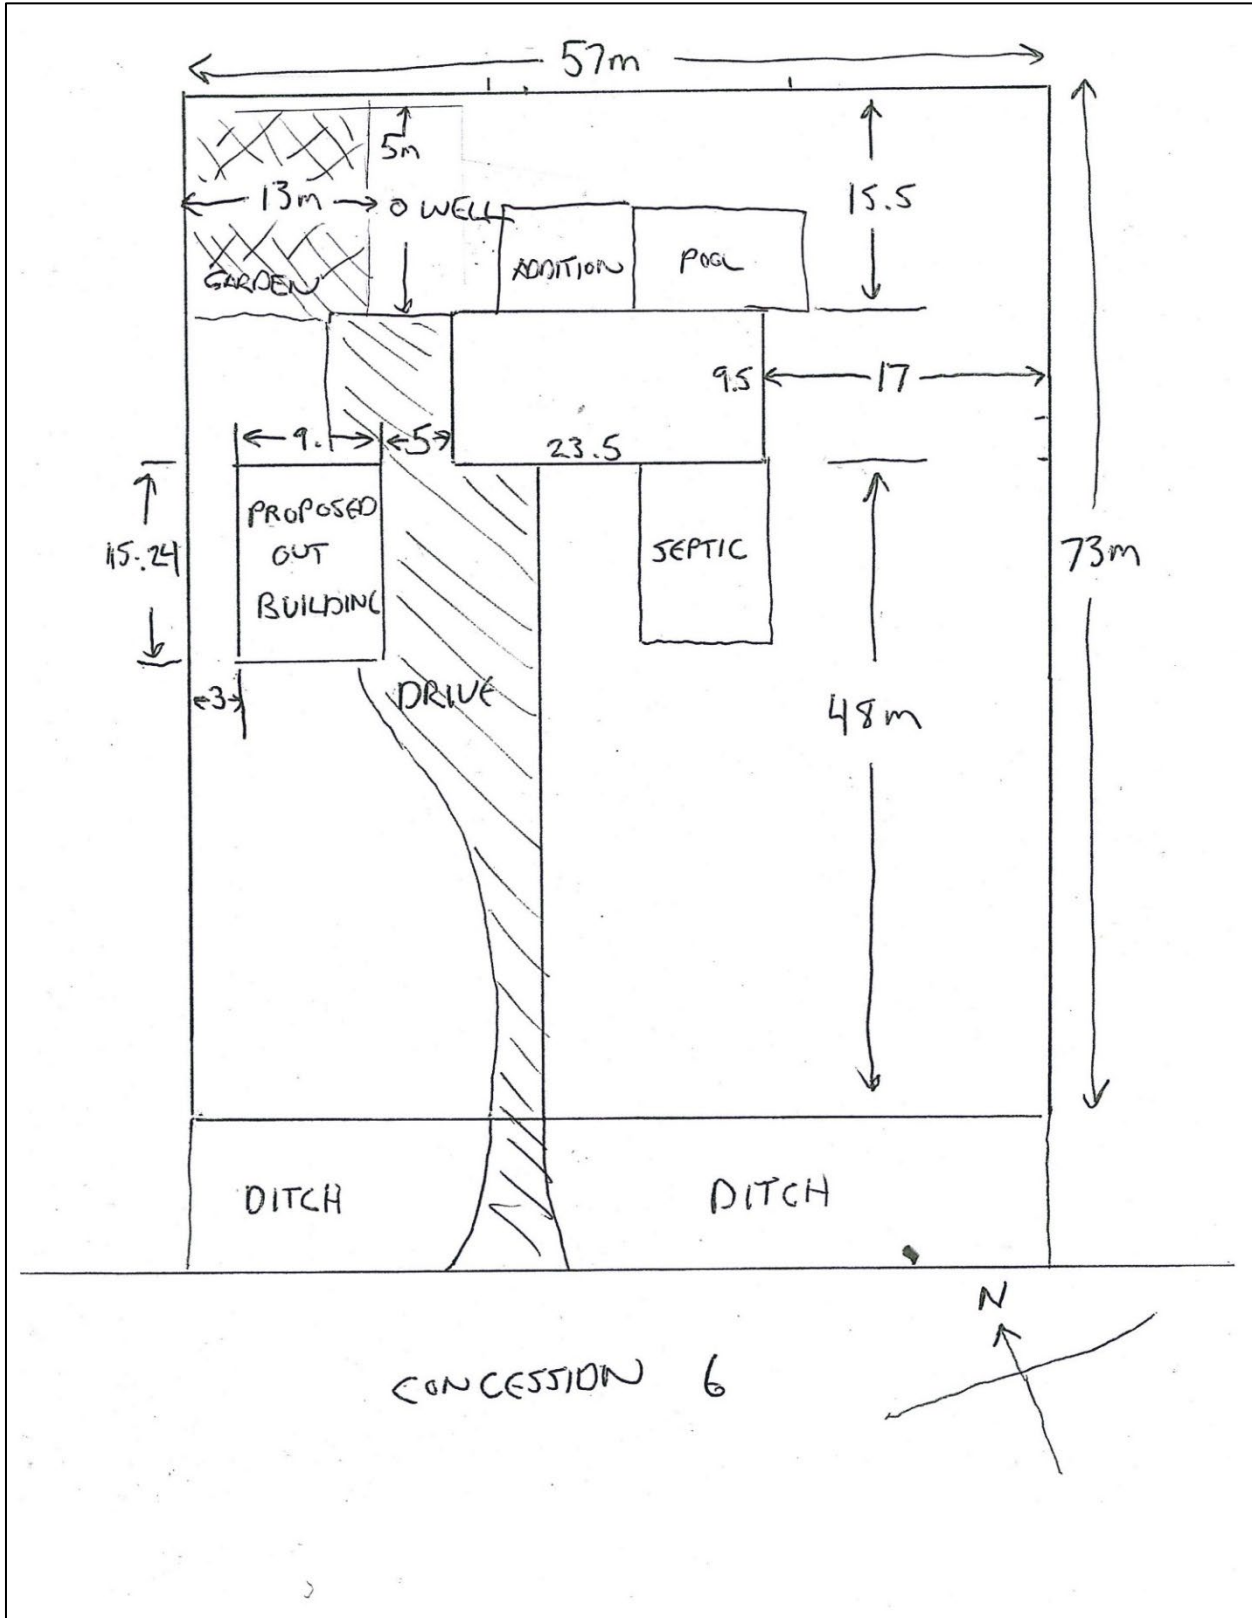 57m
5m
13m
WELL
15.5
ADDITION
POOL
GARDEN
9.5
17
9.
5
23.5
PROPOSED
OUT
BUILDING
15.24
SEPTIC
73m
3
DRIVE
48m
DITCH
DITCH
N
CONCESSION 6